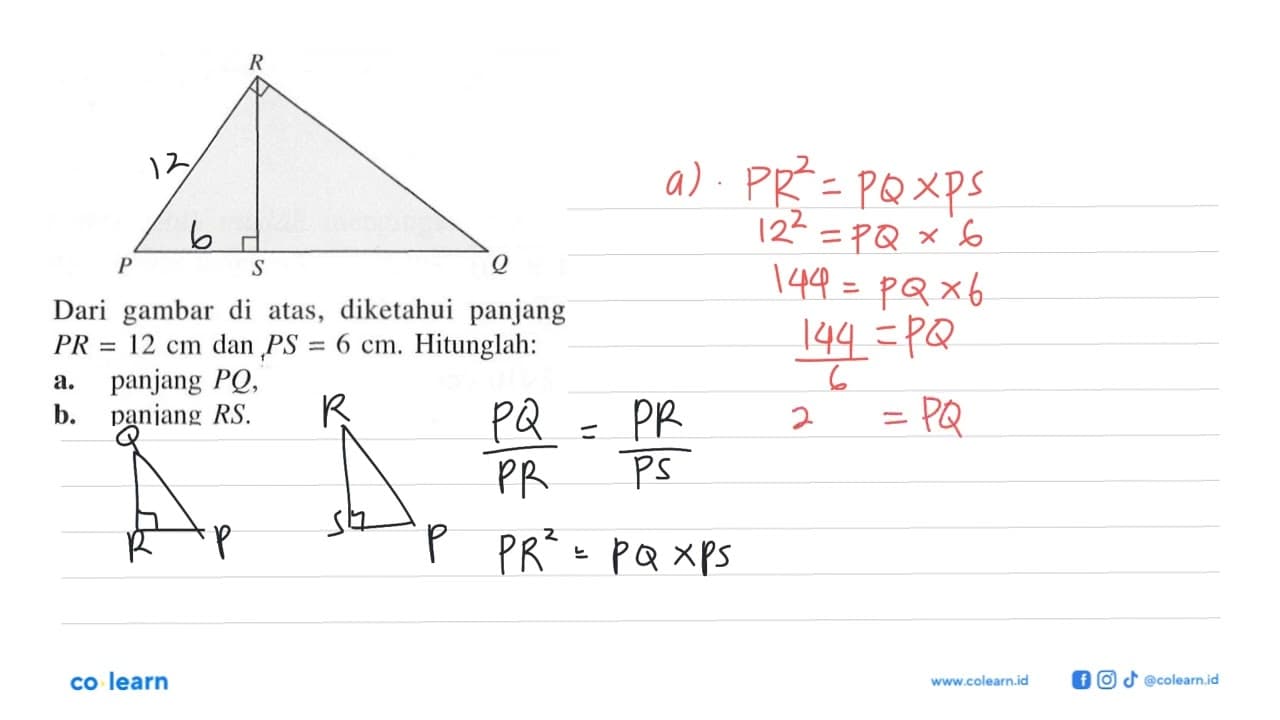 R
12
6
P
S
Q
Dari gambar di atas, diketahui panjang
PR = 12 cm dan PS = 6 cm. Hitunglah:
a. panjang PQ,
b. panjang RS.
Q
R
P
R
S
P
PQ/PR = PR/PS
PR² = PQ × PS
a). PR² = PQ × PS
12² = PQ × 6
144 = PQ × 6
144/6 = PQ
2 = PQ
co learn
www.colearn.id
@colearn.id